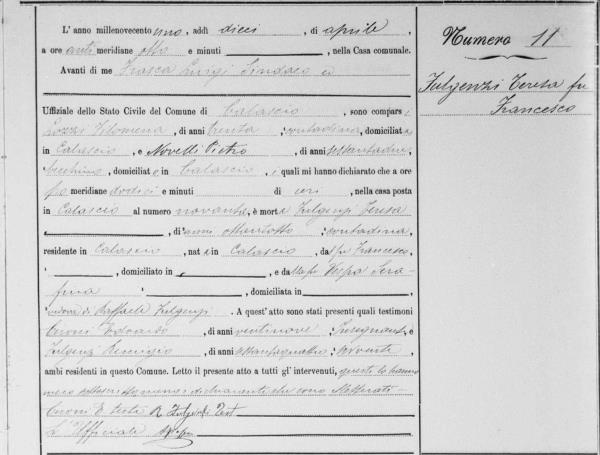 L'anno millenovecento uno, addì dieci, di aprile,
a ore anti meridiane otto e minuti, nella Casa comunale.
Avanti di me Frasca Luigi Sindaco
Uffiziale dello Stato Civile del Comune di Calascio, sono comparsi
Filomena, di anni trenta, contadina, domiciliata
in Calascio, e Novelli Pietro, di anni
, domiciliato in Calascio, i quali mi hanno dichiarato che a ore
meridiane dodici e minuti di ieri, nella casa posta
in Calascio al numero novanta, è morta Fulgenzi Teresa
, di anni ottantotto, contadina,
residente in Calascio, nata in Calascio, da fu Francesco,
, domiciliato in, e da Vespa Sera
fina, domiciliata in,
vedova di Raffaele Fulgenzi. A quest'atto sono stati presenti quali testimoni
Ciccone Edoardo, di anni ventinove, Insegnante e
Fulgenzi, di anni,
ambi residenti in questo Comune. Letto il presente atto a tutti gl'intervenuti, questi lo hanno
meco sottoscritto meno i dichiaranti che sono illetterati
L'Ufficiale
Numero 11
Fulgenzi Teresa fu
Francesco